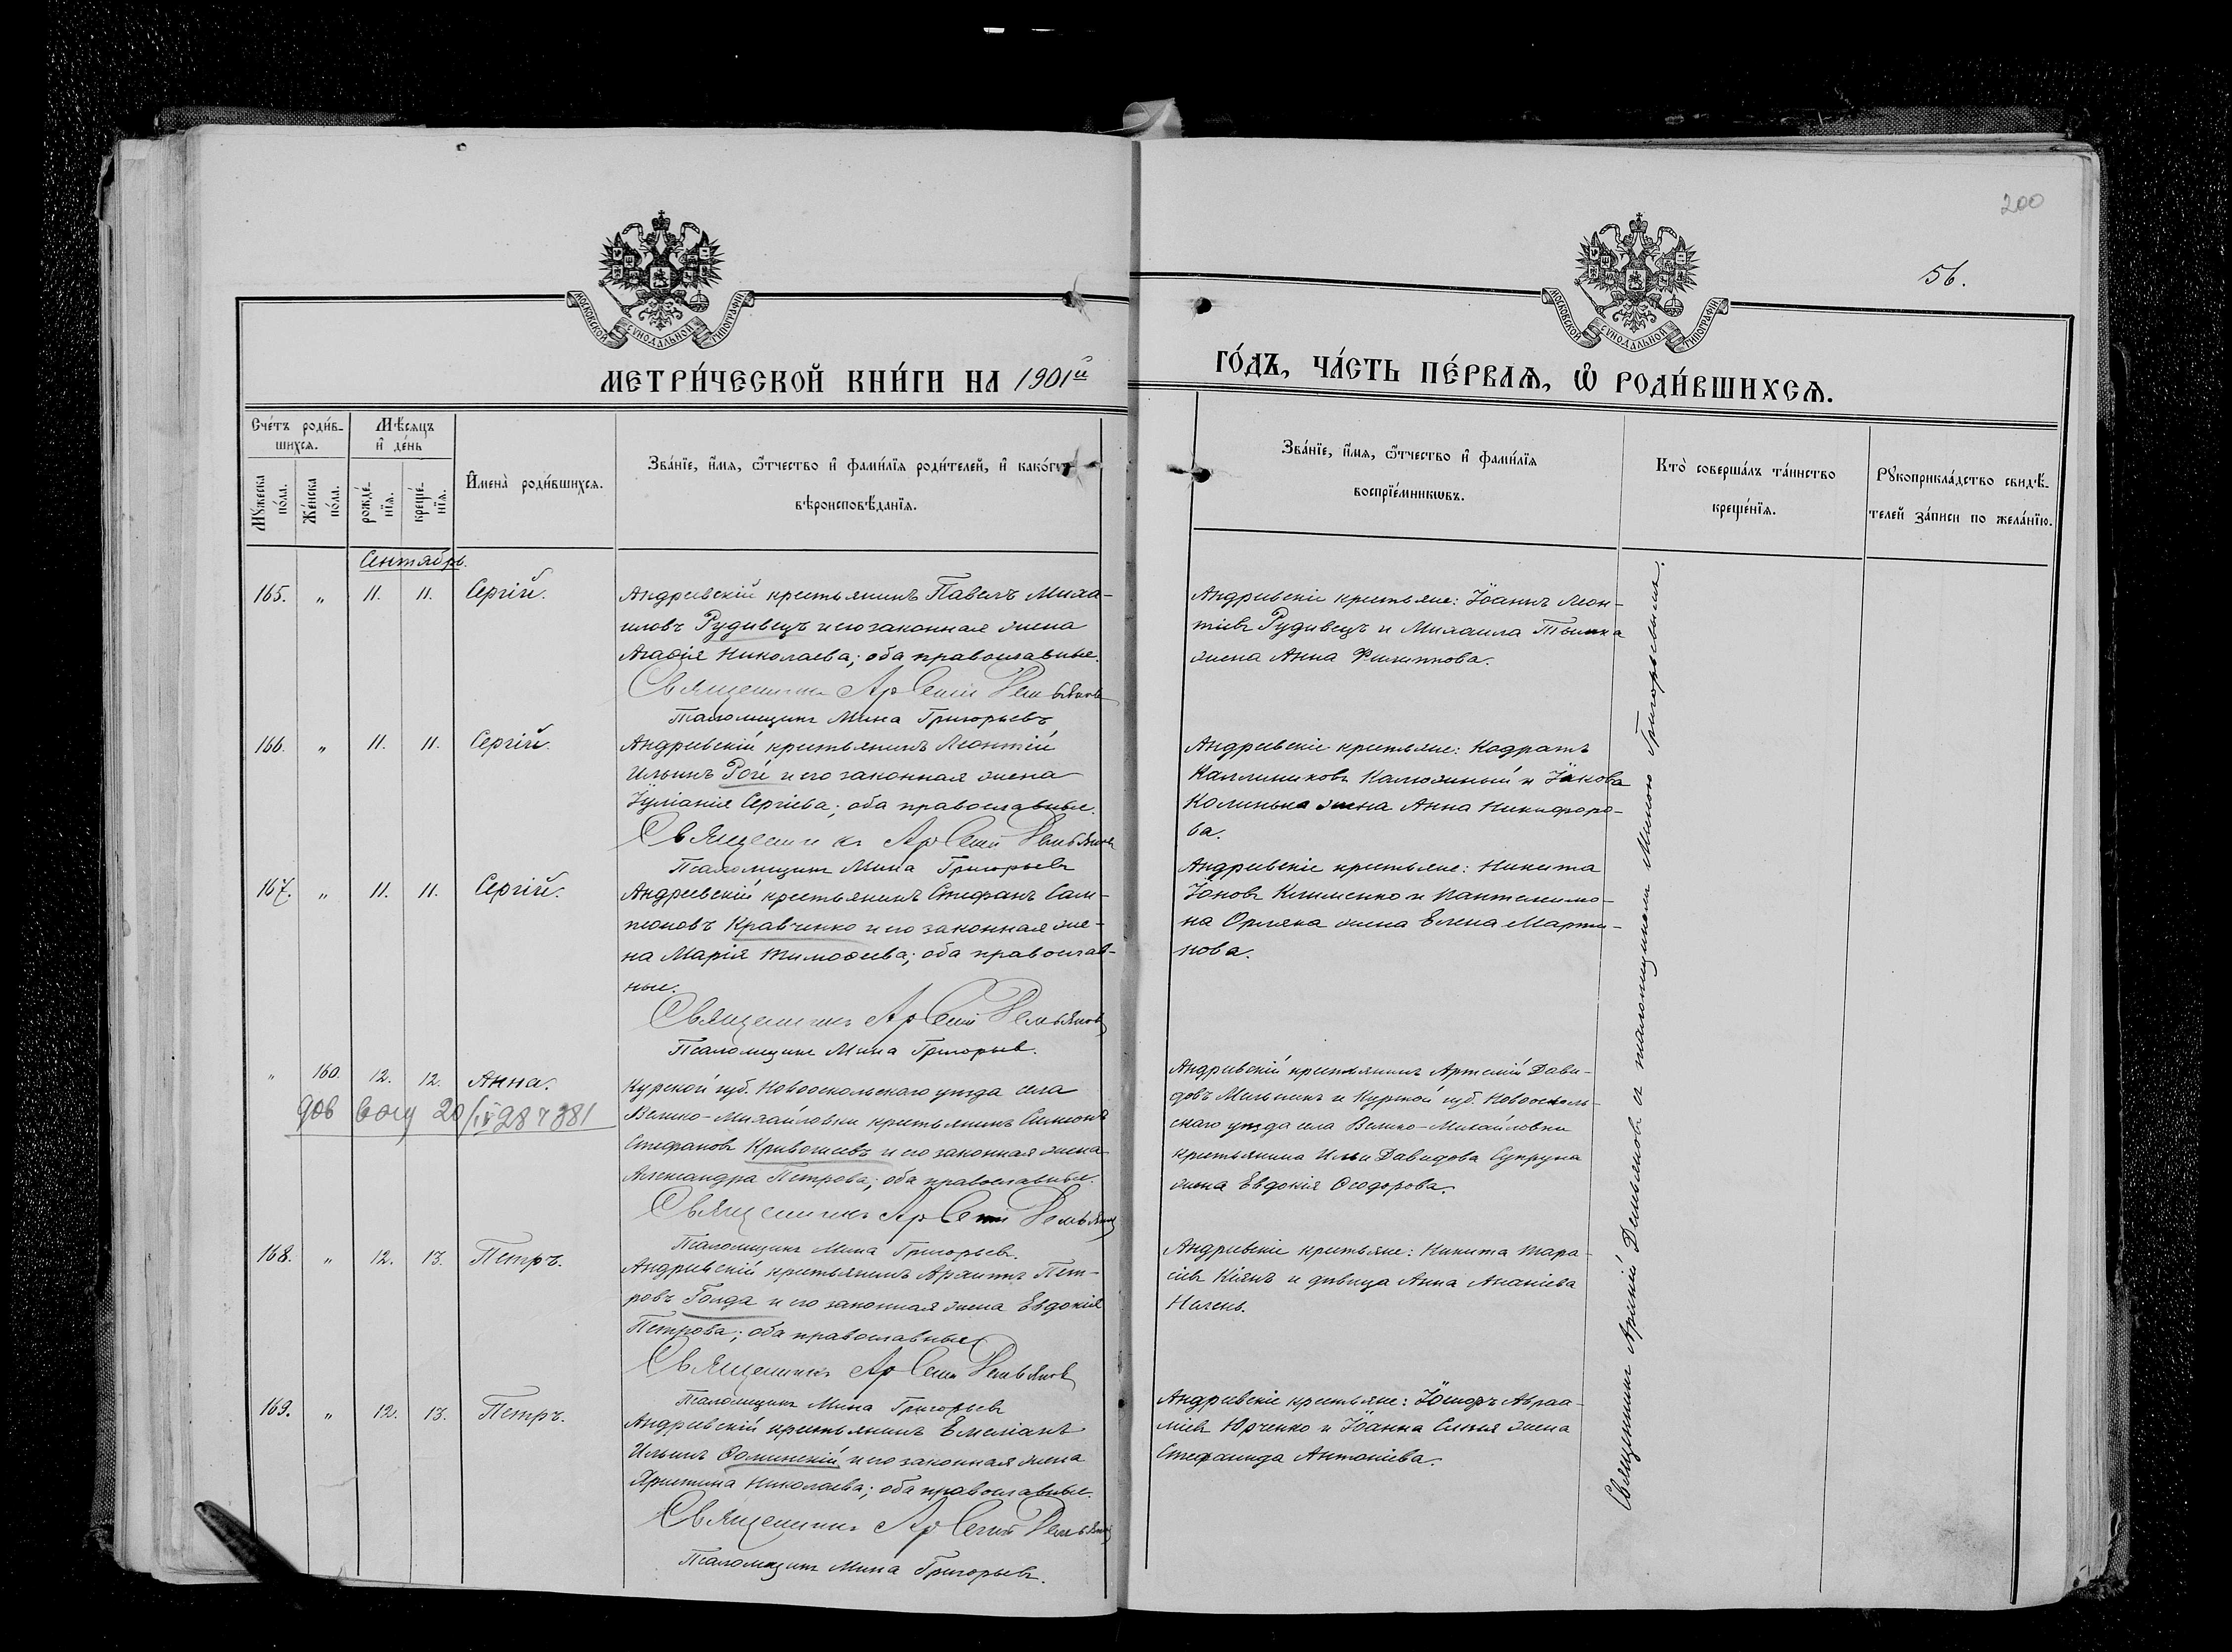 200
56.
МОСКОВСКОЙ СѴНОДАЛЬНОЙ ТИПОГРАФІИ
МОСКОВСКОЙ СѴНОДАЛЬНОЙ ТИПОГРАФІИ
МЕТРИ́ЧЕСКОЙ КНИ́ГИ НА 1901й
ГО́ДЪ, ЧА́СТЬ ПЕ́РВАѦ, Ѽ РОДИ́ВШИХСѦ.
Сче́тъ роди́в-
шихсѧ.
Мѣ́сѧцъ
и҆ де́нь
Мꙋ́жеска
по́ла.
Же́нска
по́ла.
рожде́-
нїѧ.
креще́-
нїѧ.
И҆мена̀ роди́вшихсѧ.
Зва́нїе, и҆́мѧ, ѻ҆́тчество и҆ фами́лїѧ роди́телей, и҆ како́гѡ
вѣроисповѣ́данїѧ.
Зва́нїе, и҆́мѧ, ѻ҆́тчество и҆ фами́лїѧ
воспрїе́мникѡвъ.
Кто̀ соверша́лъ та́инство
креще́нїѧ.
Рꙋкоприкла́дство свидѣ́-
телей за́писи по жела́нїю.
Сентябрь.
165. " 11. 11. Сергій.
Андреевскій крестьянинъ Павелъ Миха-
иловъ Рудивецъ и его законная жена
Агафія Николаева; оба православные.
Священникъ Арсеній Демьяновъ
Псаломщикъ Мина Григорьевъ
Андреевскіе крестьяне: Іоаннъ Леон-
тіевъ Рудивецъ и Михаила
жена Анна Филиппова.
166. " 11. 11. Сергій.
Андреевскій крестьянинъ Леонтій
Ильинъ Рогѣ и его законная жена
Іуліанія Сергіева; оба православные.
Священникъ Арсеній Демьяновъ
Псаломщикъ Мина Григорьевъ
Андреевскіе крестьяне: Кодратъ
Каллиниковъ Калюжный и Іакова
Калинька жена Анна Никифоро-
ва.
167. " 11. 11. Сергій.
Андреевскій крестьянинъ Стефанъ Сам-
псоновъ Кравченко и его законная же-
на Марія Тимоѳеева; оба православ-
ные.
Священникъ Арсеній Демьяновъ
Псаломщикъ Мина Григорьев.
Андреевскіе крестьяне: Никита
Іоновъ Клименко и Пантелеимо-
на Орляка жена Елена Марти-
нова.
" 160. 12. 12. Анна.
20/IV 28 г 381
Курской губ. Новооскольскаго уѣзда села
Велико-Михайловки крестьянинъ Симеонъ
Стефановъ Кривошеевъ и его законная жена
Александра Петрова; оба православные.
Священникъ Арсеній Демьяновъ
Псаломщикъ Мина Григорьевъ.
Андреевскій крестьянинъ Артемій Дави-
довъ Мильшинъ и Курской губ. Новоосколь-
скаго уѣзда села Велико-Михайловки
крестьянина Ильи Давидова Супруна
жена Евдокія Ѳеодорова.
168. " 12. 13. Петръ.
Андреевскій крестьянинъ Архиппъ Пет-
ровъ Голда и его законная жена Евдокія
Петрова; оба православные
Священникъ Арсеній Демьяновъ
Псаломщикъ Мина Григорьевъ
Андреевскіе крестьяне: Никита Тара-
сіевъ Кіянъ и дѣвица Анна Ананіева
169. " 12. 13. Петръ.
Андреевскій крестьянинъ Емеліанъ
Ильинъ Ѳоминскій и его законная жена
Христина Николаева; оба православные.
Священникъ Арсеній Демьяновъ
Псаломщикъ Мина Григорьевъ.
Андреевскіе крестьяне: Іосифъ Авраа-
міевъ Юрченко и Іоанна Синяя жена
Стефанида Антоніева.
Священникъ Арсеній Демьяновъ съ псаломщикомъ Миною Григорьевымъ.